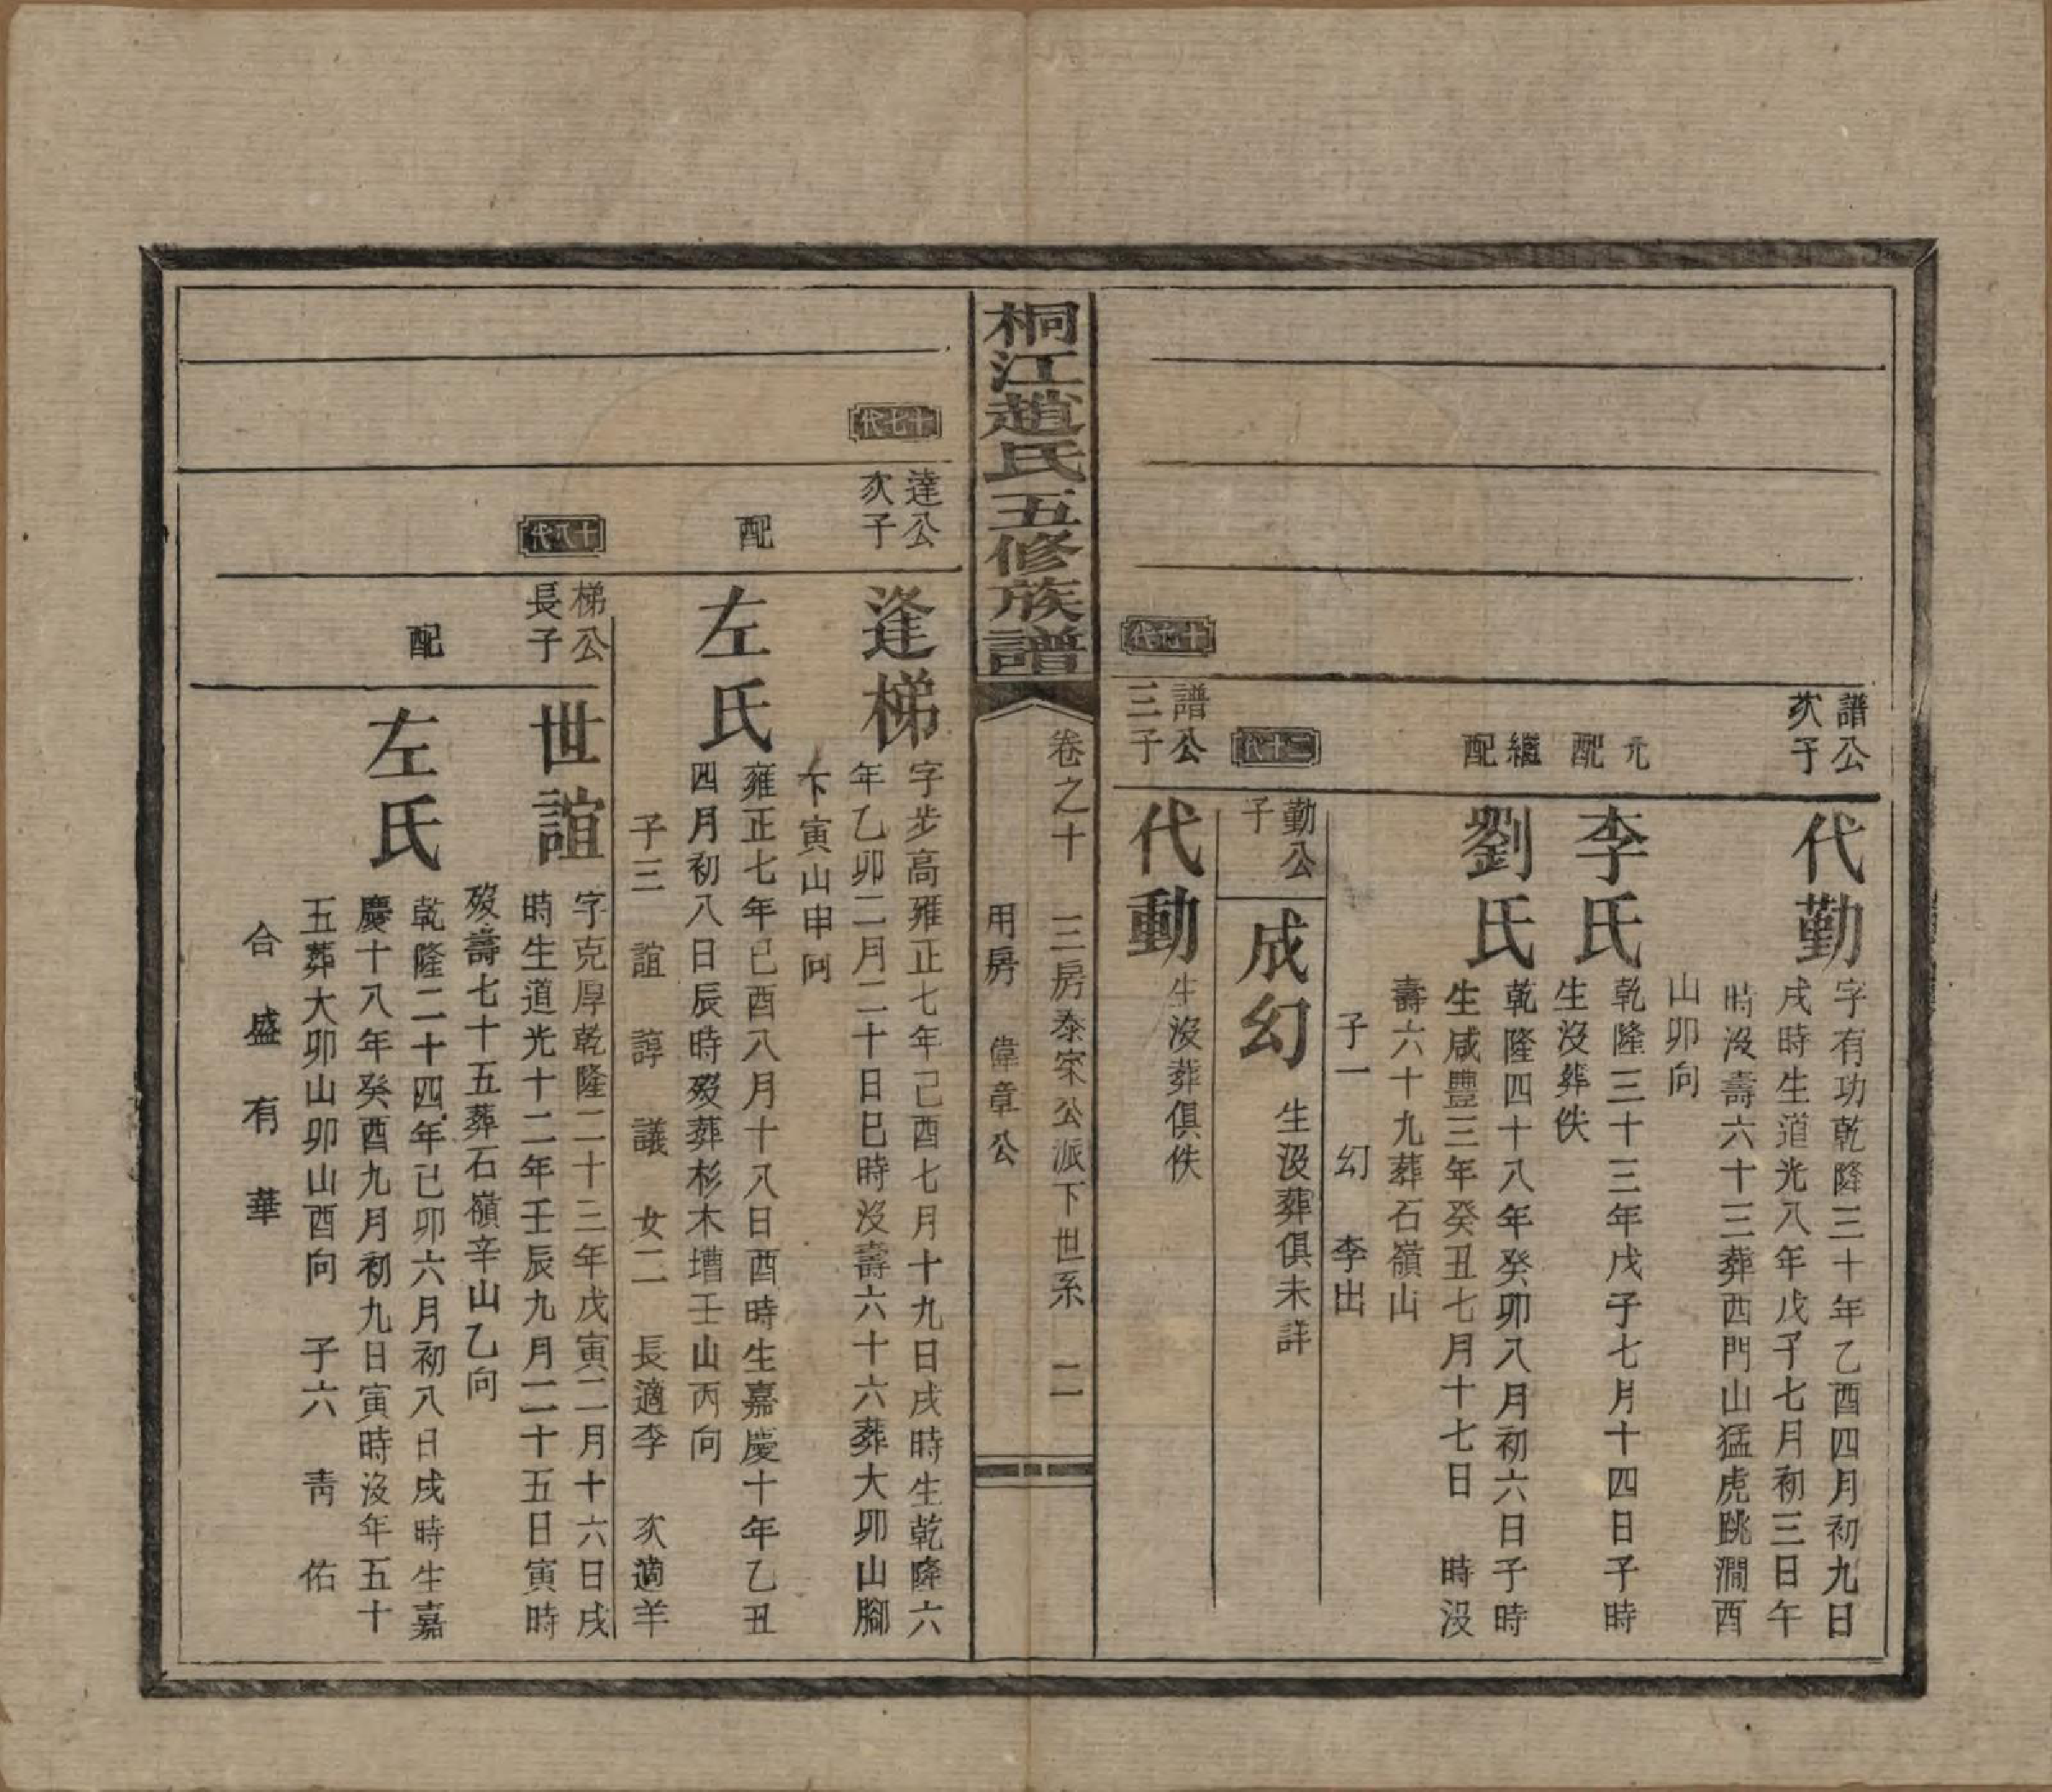 譜公
次子
代勤
字有功乾隆三十年乙酉四月初九日
戌時生道光八年戊子七月初三日午
時沒壽六十三葬西門山猛虎跳澗酉
山卯向
元
配
李氏
乾隆三十三年戊子七月十四日子時
生沒葬佚
繼
配
劉氏
乾隆四十八年癸卯八月初六日子時
生咸豐三年癸丑七月十七日 時沒
壽六十九葬石嶺山
子一 幻 李出
二十代
勤公
子
成幻
生沒葬俱未詳
譜公
三子
代動
生沒葬俱佚
桐江趙氏五修族譜
卷之十 三房泰宗公派下世系 二
用房 偉章公
十七代
達公
次子
逢梯
字步高雍正七年己酉七月十九日戌時生乾隆六
年乙卯二月二十日巳時沒壽六十六葬大卯山腳
下寅山申向
配
左氏
雍正七年已酉八月十八日酉時生嘉慶十年乙丑
四月初八日辰時歿葬杉木壋壬山丙向
子三 誼 諄 議 女二 長適李 次適羊
十八代
梯公
長子
世誼
字克厚乾隆二十三年戊寅二月十六日戌
時生道光十二年壬辰九月二十五日寅時
歿壽七十五葬石嶺辛山乙向
配
左氏
乾隆二十四年已卯六月初八日戌時生嘉
慶十八年癸酉九月初九日寅時沒年五十
五葬大卯山卯山酉向 子六 靑 佑
合 盛 有 華